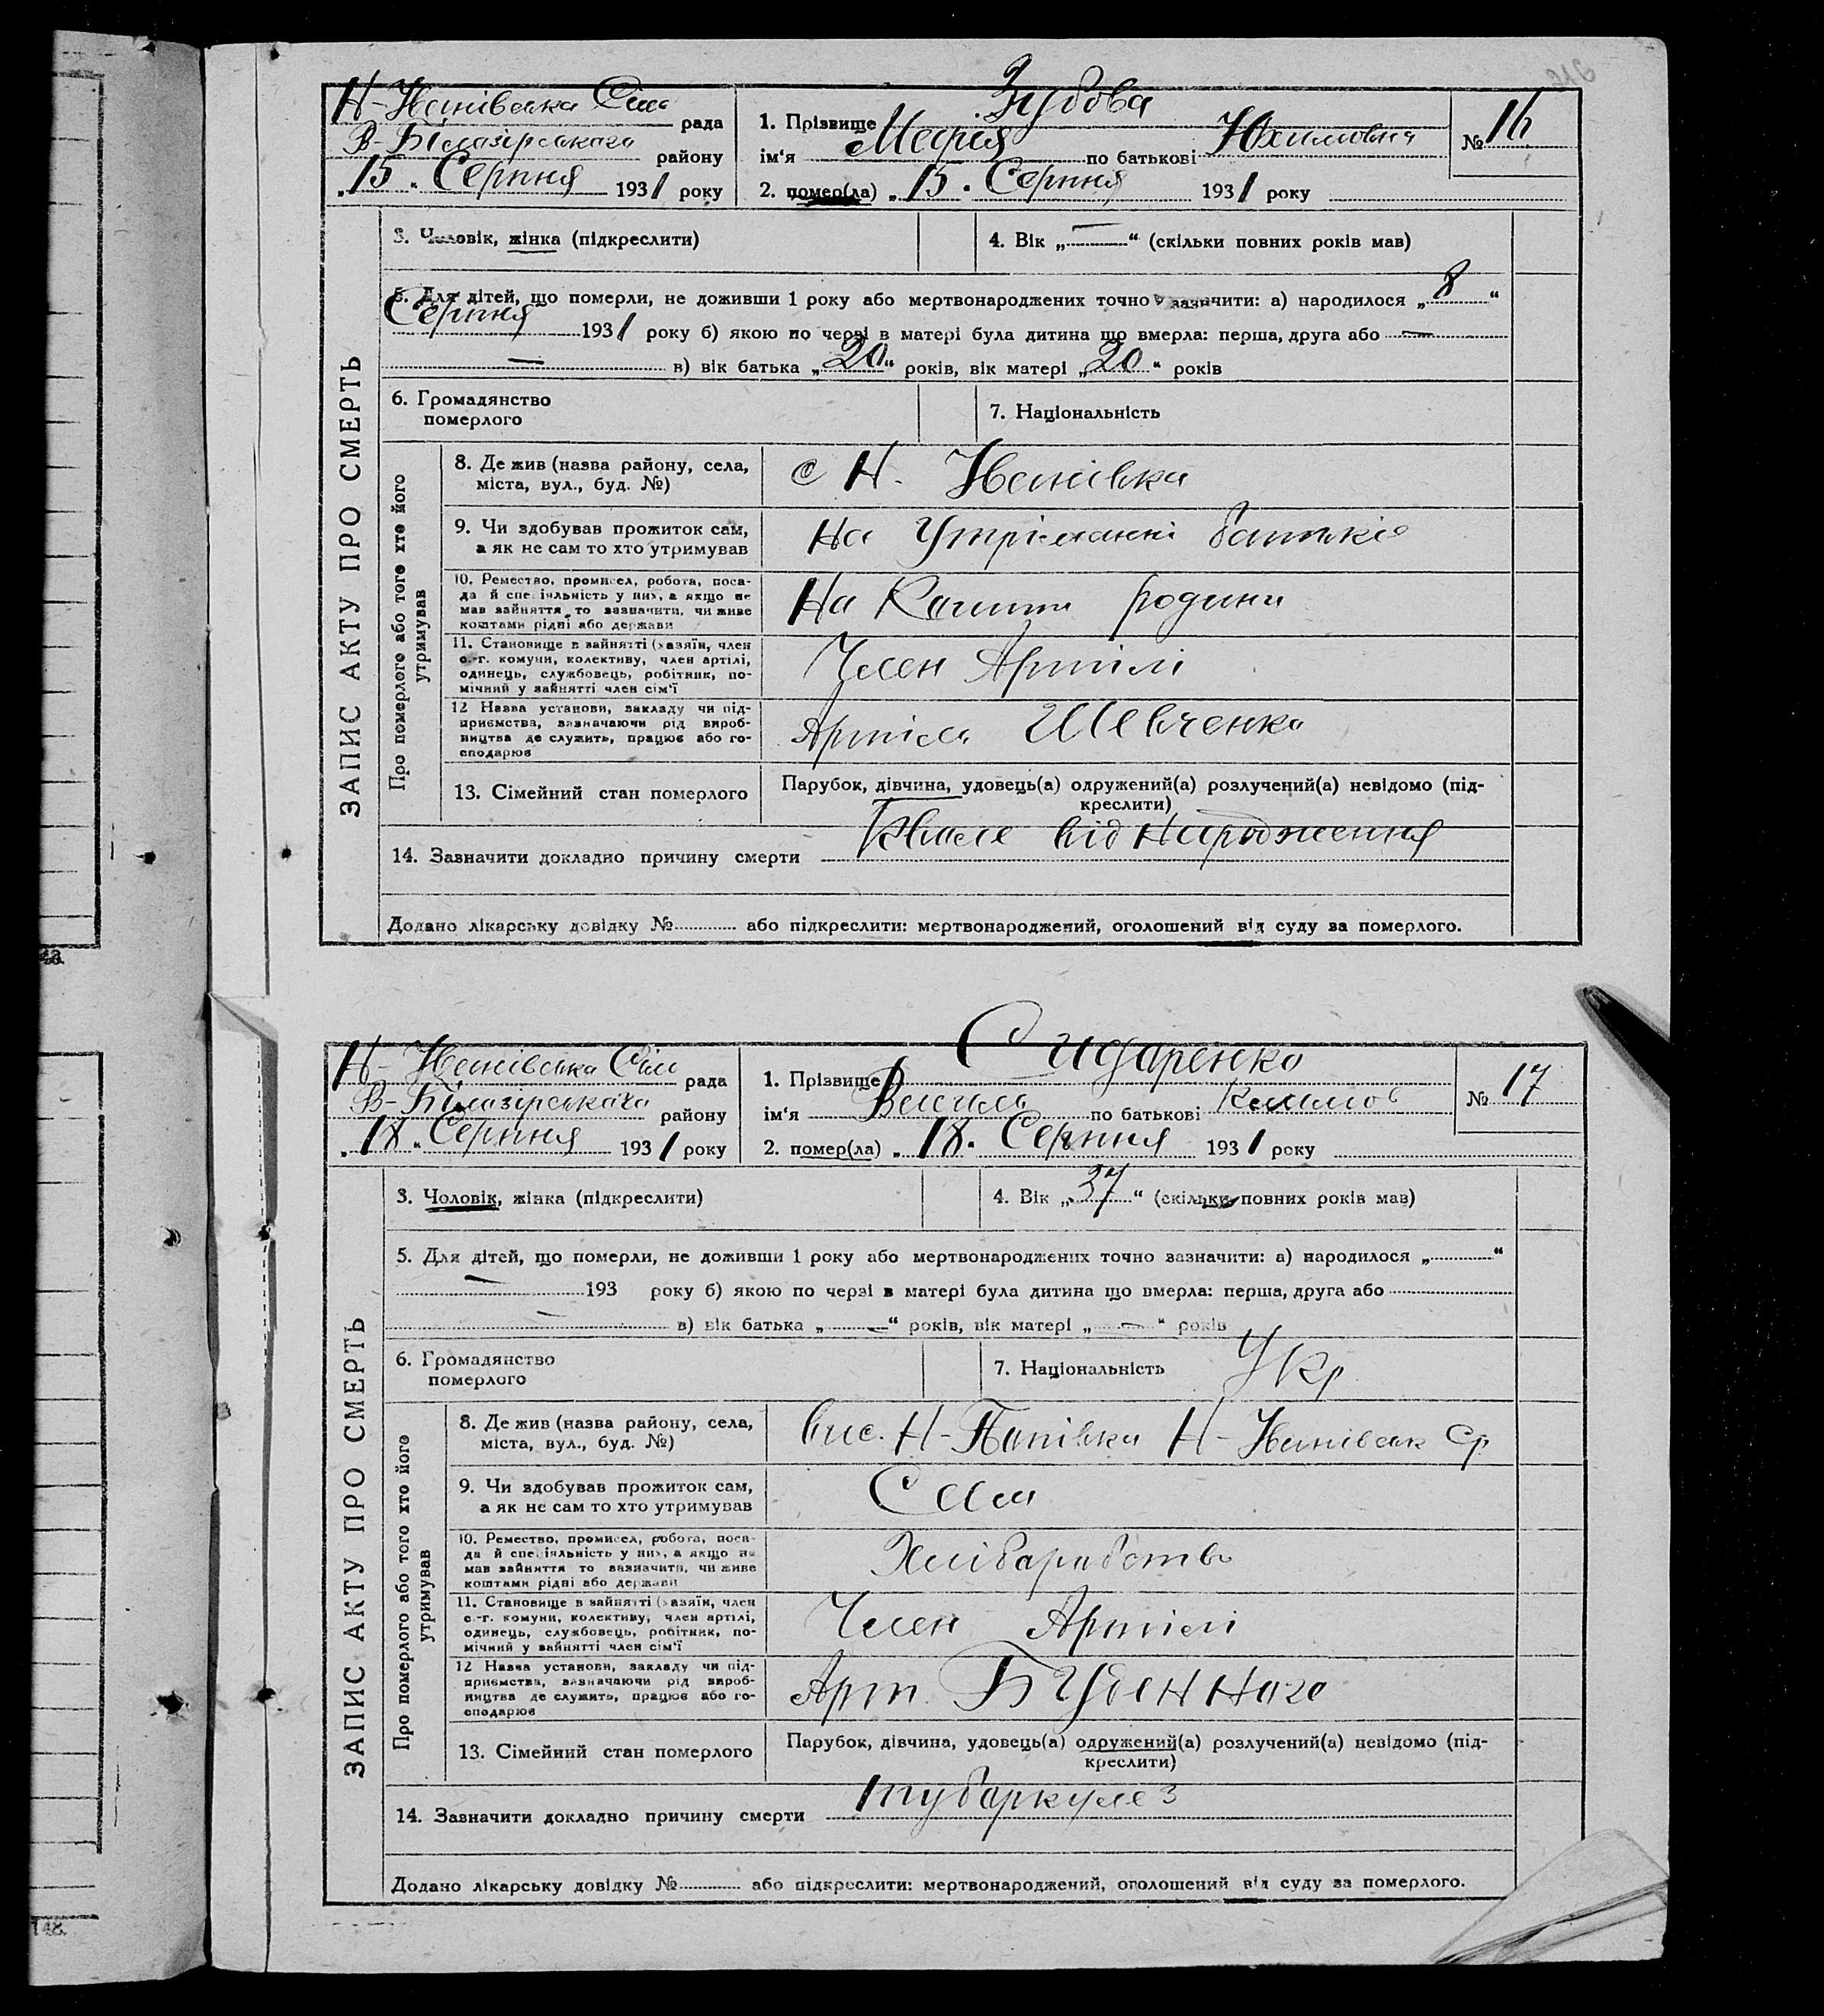 Н-Іванівська Сіль рада
В-Білазірського району
„15“ Серпня 1931 року
1. Прізвище Зубова
ім‘я Марія по батькові Юхимовна
2. помер(ла) „15“ Серпня 1931 року
№ 16
ЗАПИС АКТУ ПРО СМЕРТЬ
3. Чоловік, жінка (підкреслити)
4. Вік „—“ (скільки повних років мав)
5. Для дітей, що померли, не доживши 1 року або мертвонароджених точно зазначити: а) народилося „8“
Серпня 1931 року б) якою по черзі в матері була дитина що вмерла: перша, друга або —
— в) вік батька „20“ років, вік матері „20“ років
6. Громадянство
померлого
7. Національність
Про померлого або того хто його
утримував
8. Де жив (назва району, села,
міста, вул., буд. №)
с Н. Іванівка
9. Чи здобував прожиток сам,
а як не сам то хто утримував
На Утріманні батьків
10. Ремество, промисел, робота, поса-
да й спеціяльність у них, а якщо не
мав зайняття то зазначити, чи живе
коштами рідні або держави
На Кошти родини
11. Становище в зайнятті (хазяїн, член
с.-г. комуни, колективу, член артілі,
одинець, службовець, робітник, по-
мічний у зайнятті член сім‘ї
Член Артілі
12 Назва установи, закладу чи під-
приємства, зазначаючи рід вироб-
ництва де служить, працює або го-
сподарює
Артіль Шевченка
13. Сімейний стан померлого
Парубок, дівчина, удовець(а) одружений(а) розлучений(а) невідомо (під-
креслити)
14. Зазначити докладно причину смерти
від народження
Додано лікарську довідку № або підкреслити: мертвонароджений, оголошений від суду за померлого.
Н-Іванівська Сіль рада
В-Білазірського району
„18“ Серпня 1931 року
1. Прізвище Сидаренко
ім‘я Василь по батькові
2. помер(ла) „18“ Серпня 1931 року
№ 17
ЗАПИС АКТУ ПРО СМЕРТЬ
3. Чоловік, жінка (підкреслити)
4. Вік „37“ (скільки повних років мав)
5. Для дітей, що померли, не доживши 1 року або мертвонароджених точно зазначити: а) народилося „“
— 193 року б) якою по черзі в матері була дитина що вмерла: перша, друга або
— в) вік батька „—“ років, вік матері „—“ років
6. Громадянство
померлого
7. Національність Укр
Про померлого або того хто його
утримував
8. Де жив (назва району, села,
міста, вул., буд. №)
вис. Н-Панівка Н-Іванівськ Ср
9. Чи здобував прожиток сам,
а як не сам то хто утримував
Сам
10. Ремество, промисел, робота, поса-
да й спеціяльність у них, а якщо не
мав зайняття то зазначити, чи живе
коштами рідні або держави
Хлібаработво
11. Становище в зайнятті (хазяїн, член
с.-г. комуни, колективу, член артілі,
одинець, службовець, робітник, по-
мічний у зайнятті член сім‘ї
Член Артілі
12 Назва установи, закладу чи під-
приємства, зазначаючи рід вироб-
ництва де служить, працює або го-
сподарює
Арт. Буденного
13. Сімейний стан померлого
Парубок, дівчина, удовець(а) одружений(а) розлучений(а) невідомо (під-
креслити)
14. Зазначити докладно причину смерти
тубаркулез
Додано лікарську довідку № або підкреслити: мертвонароджений, оголошений від суду за померлого.